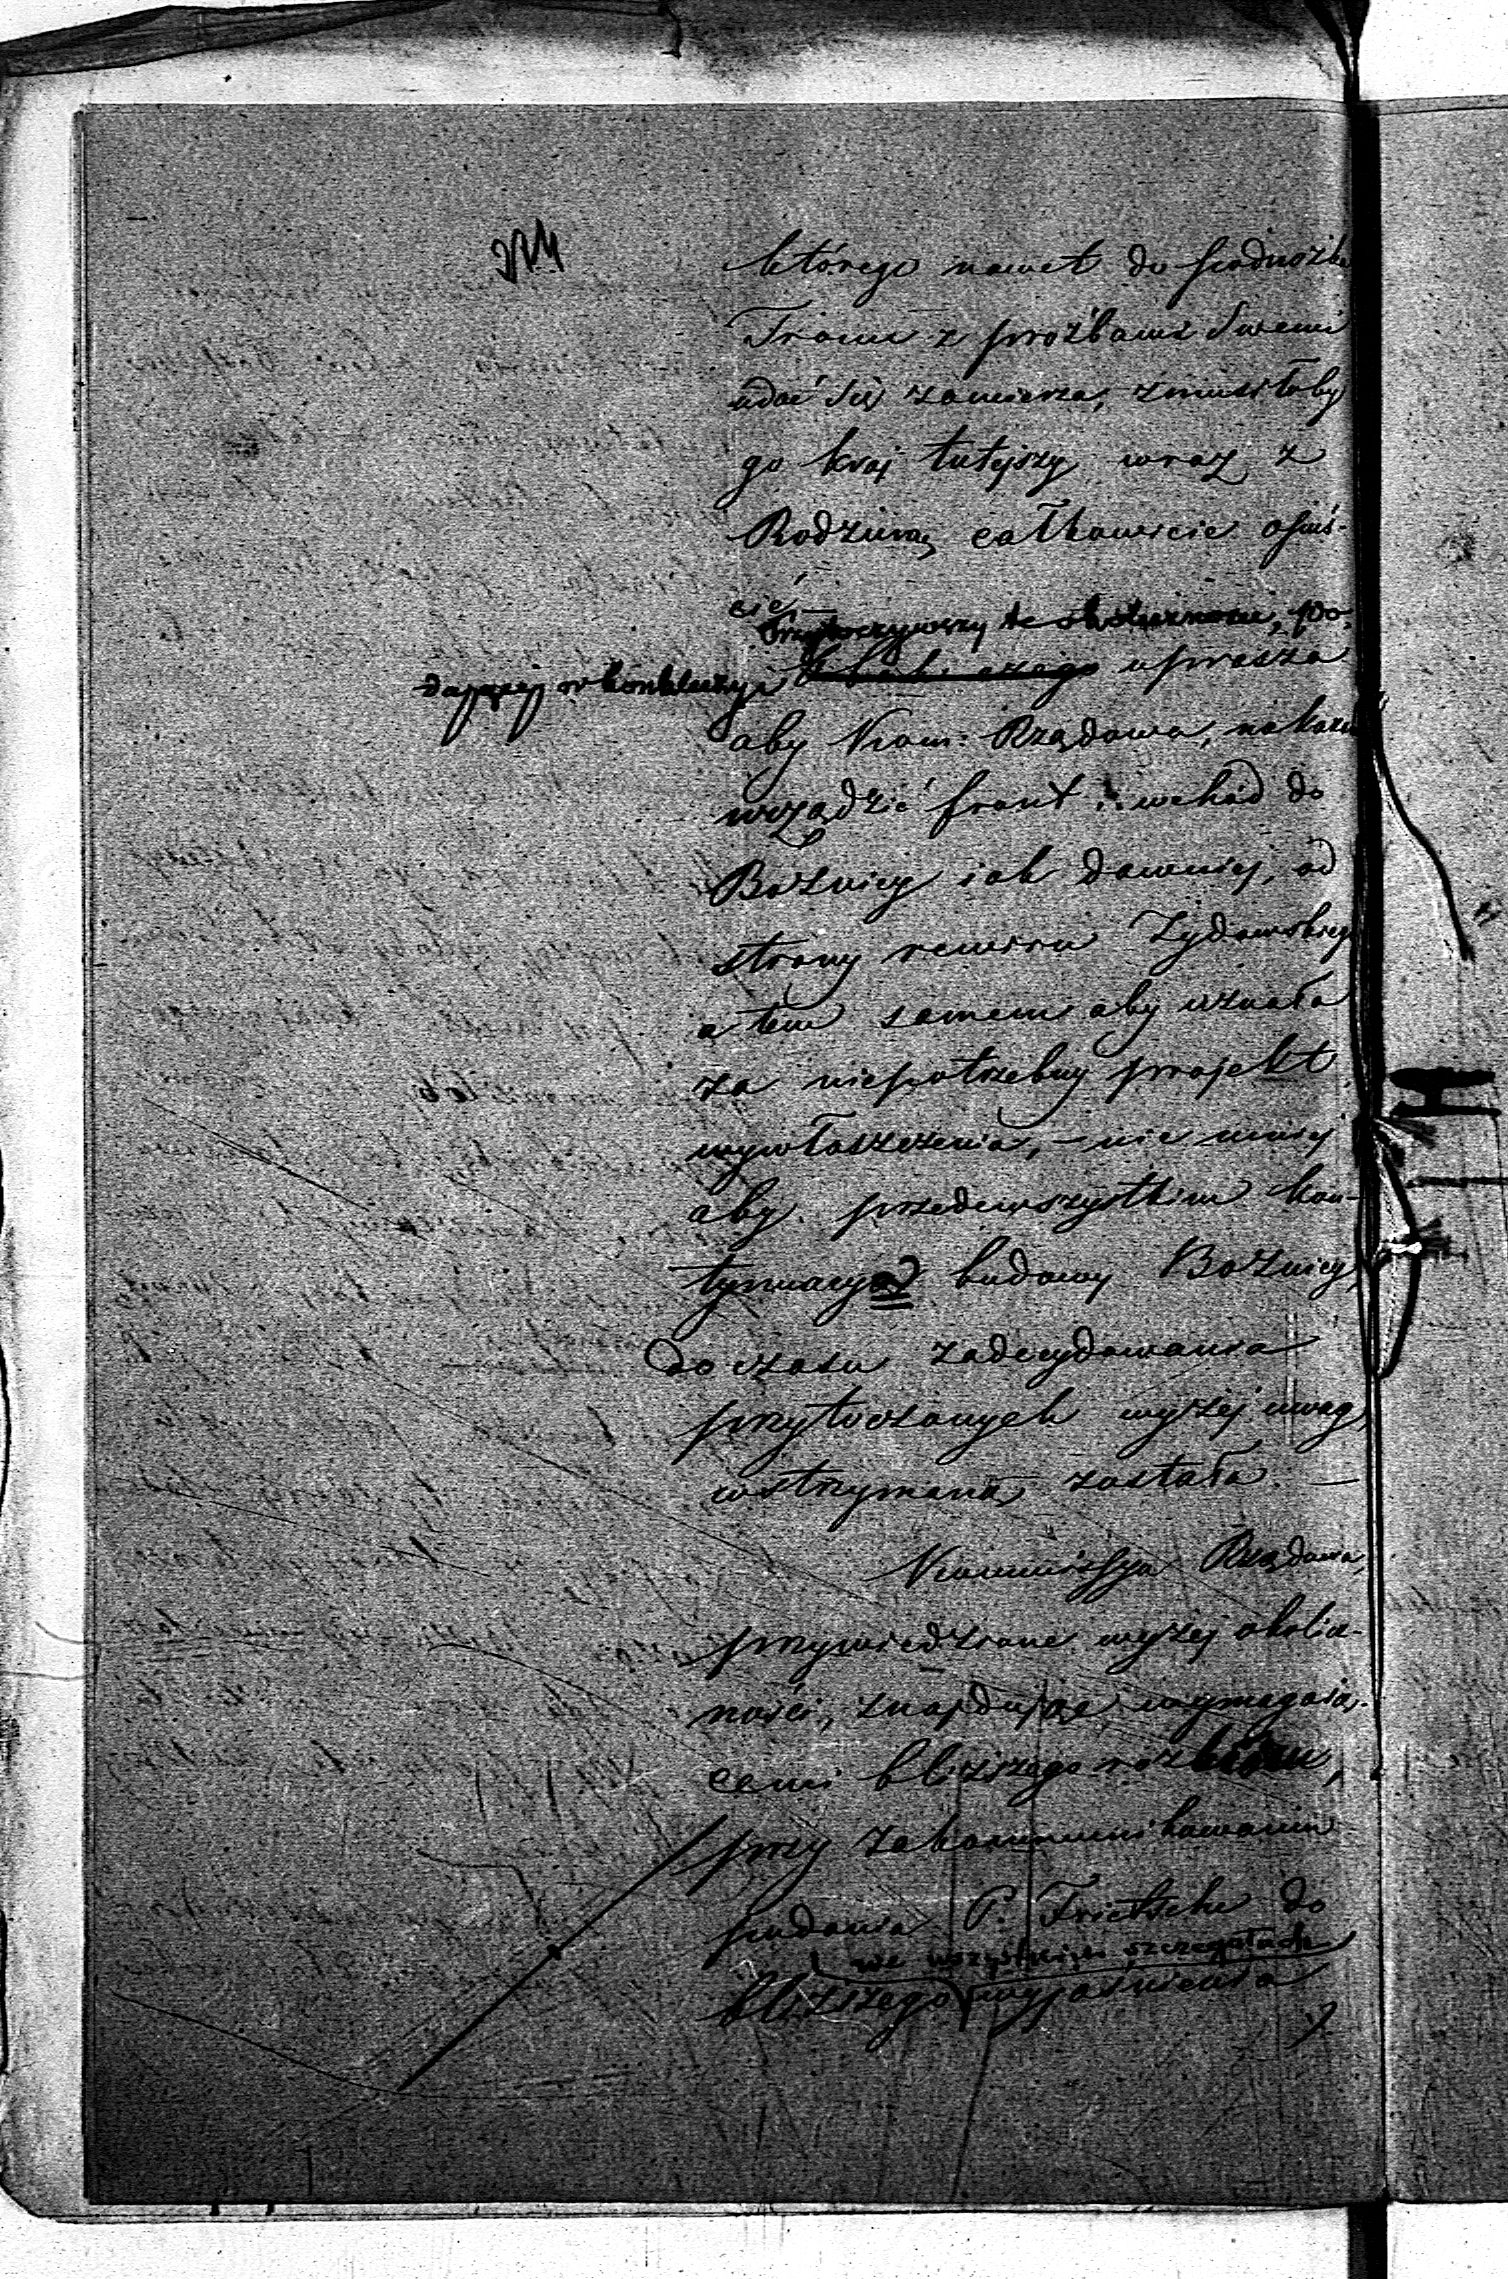 którego nawet do podnóżka
Tronu z prożbami Swemi
udać się zamierza, zmusiłoby
go kray tutejszy wraz z
Rodziną całkowicie opuś-
cić —
Przytoczywszy te okoliczności, po-
dający w konkluzyi uprasza
aby Kom: Rządowa, nakaza
urządzić front i wchód do
Bożnicy iak dawniej, od
strony rewiru Żydowskiego
a tem samem aby uznała
za niepotrzebny projekt
wywłaszczenia, – nie mniej
aby przedewszystkiem kon-
tynuacya budowy Bożnicy,
do czasu zadecydowania
przytoczonych wyżej uwag,
wstrzymaną została. —
Kommissya Rządowa,
przywiedzione wyżej okolicz-
ności, znajdując wymagaią-
cemi bliższego rozbioru,
przy zakommunikowaniu
podania P. Frietsche do
we wszystkich szczegółach
bliższego wyjaśnienia